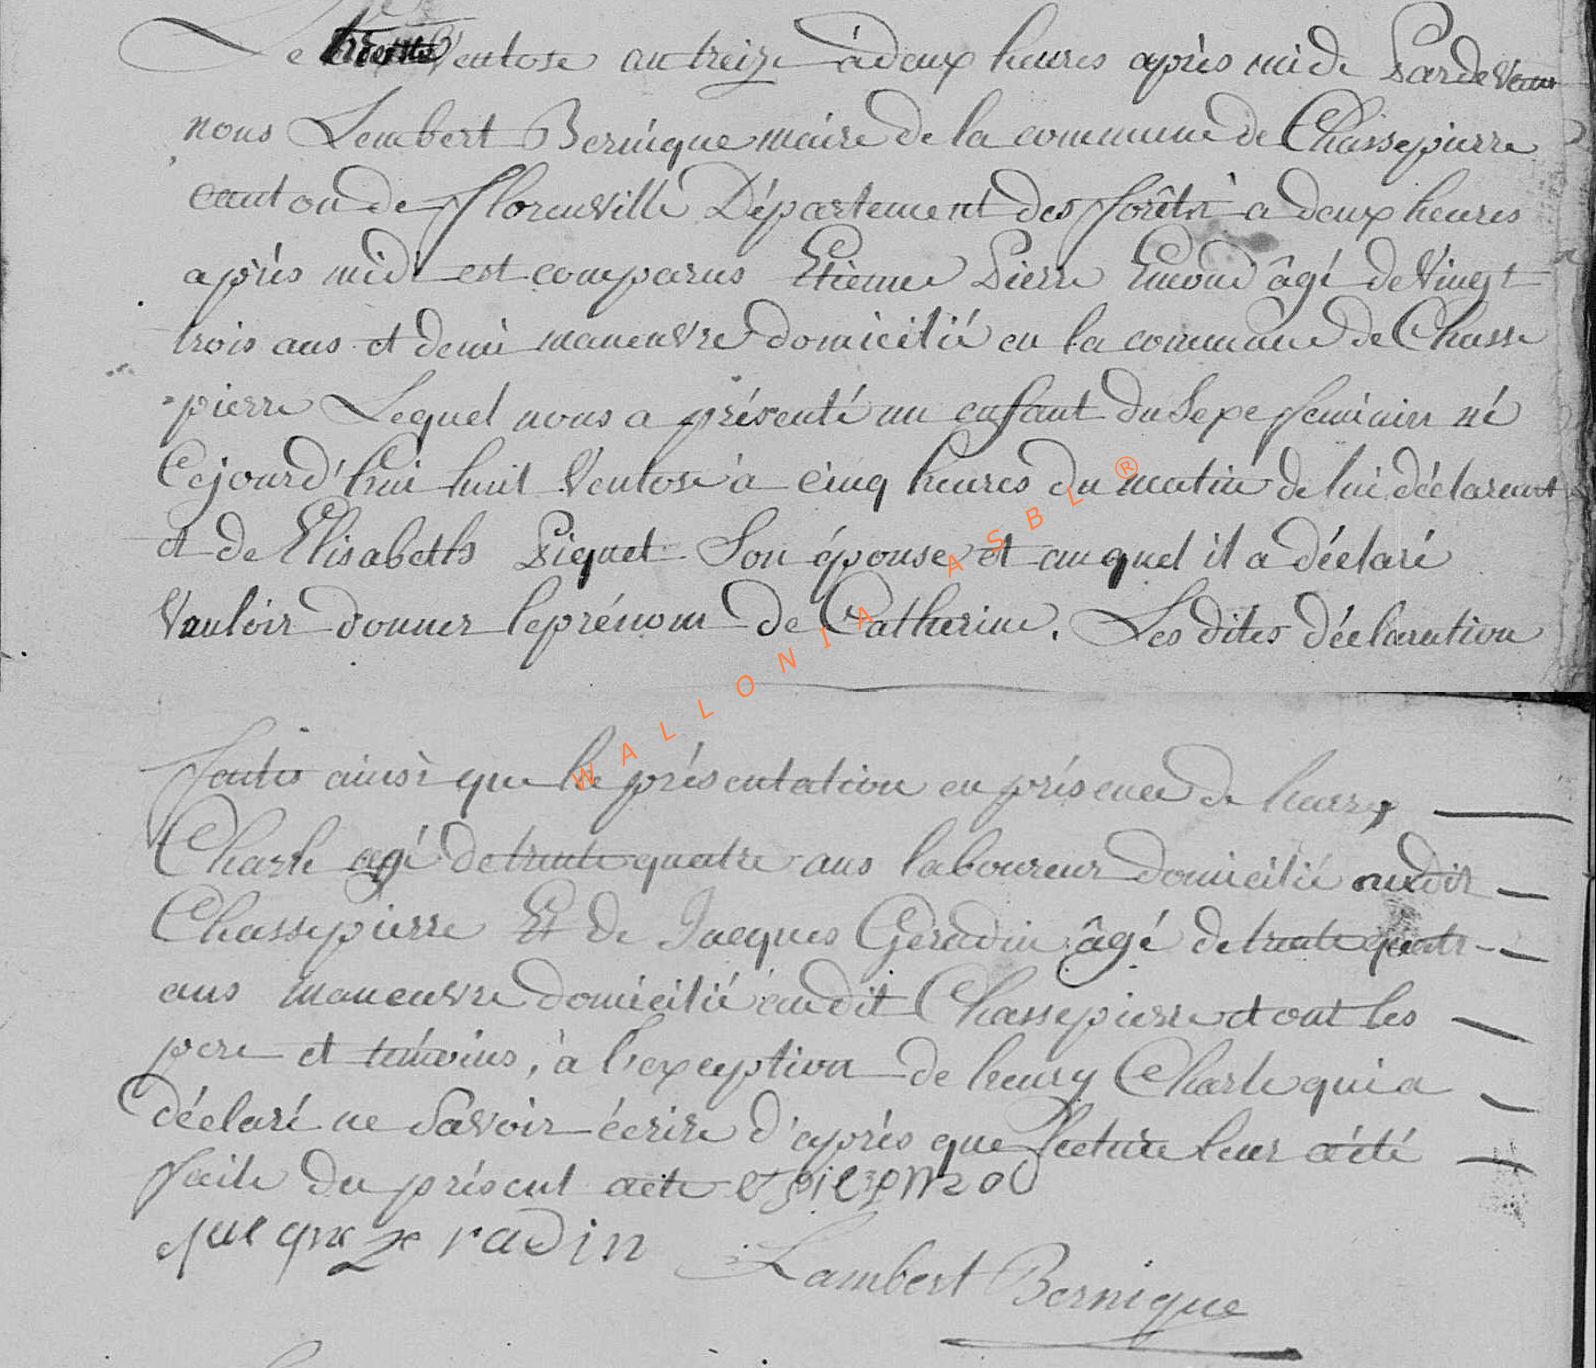 Le Ventose an treize à deux heures après midi Pardevant
nous Lembert Bernique maire de la commune de Chassepierre
canton de florenville Département des forêts à deux heures
après midi est comparus Etienne Pierre Emond âgé de Vingt
trois ans et demi maneuvre domicilié en la commune de Chasse
pierre Lequel nous a présenté un enfant du Sexe feminin né
Cejourd'hui huit Ventose à cinq heures du matin de lui déclarant
et de Elisabeth Piquet Son épouse et auquel il a déclaré
Vouloir donner le prénom de Catherine. Les dites déclaration
faites ainsi que la présentation en présence de henry
Charle agé de trente quatre ans laboureur domicilié audit
Chassepierre Et de Jacques Geradin âgé de trente quatre
ans maneuvre domicilié audit Chassepierre et ont les
pere et témoins, à l'exception de henry Charle qui a
déclaré ne Savoir écrire d'après que lecture leur a été
faite du présent acte
Geradin
Lambert Bernique
WALLONIA ASBL ®